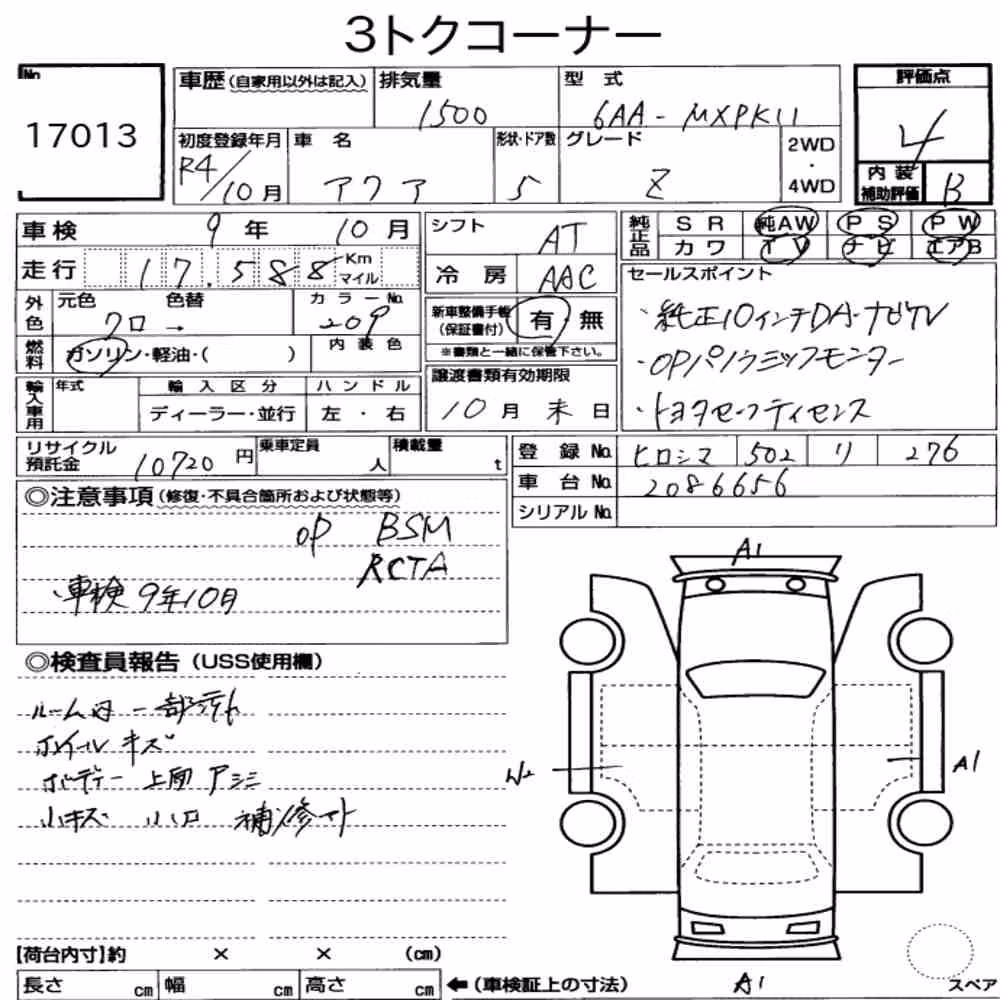 3トクコーナー
No.
17013
車歴(自家用以外は記入)
排気量
1500
型 式
6AA-MXPK11
評価点
4
初度登録年月
R4/10月
車 名
アクア
形状・ドア数
5
グレード
Z
2WD
・
4WD
内 装
補助評価
B
車検 9年 10月
走行 17.588 Km
マイル
シフト
AT
冷 房
AAC
純正品
SR 純AW PS PW
カワ TV ナビ エアB
外色
元色 色替
クロ→
カラーNo.
209
燃料
ガソリン・軽油・( )
内 装 色
新車整備手帳
(保証書付)
有 無
※書類と一緒に保管下さい。
セールスポイント
・純正10インチDA・ナビTV
・OPパノラミックモニター
・トヨタセーフティセンス
輸入車用
年式
輸 入 区 分
ディーラー・並行
ハ ン ド ル
左 ・ 右
譲渡書類有効期限
10月 末 日
リサイクル
預託金
10720 円
乗車定員
人
積載量
t
登 録 No. ヒロシマ 502 リ 276
車 台 No. 2086656
シリアルNo.
◎注意事項(修復・不具合箇所および状態等)
OP BSM
RCTA
・車検 9年10月
◎検査員報告(USS使用欄)
ルーム内 一部汚れ
ホイル キズ
ボディー 上面 アシミ
小キズ 小凹 補修マト
A1
W2
A1
A1
スペア
【荷台内寸】約 × × (cm)
長さ cm 幅 cm 高さ cm ←(車検証上の寸法)